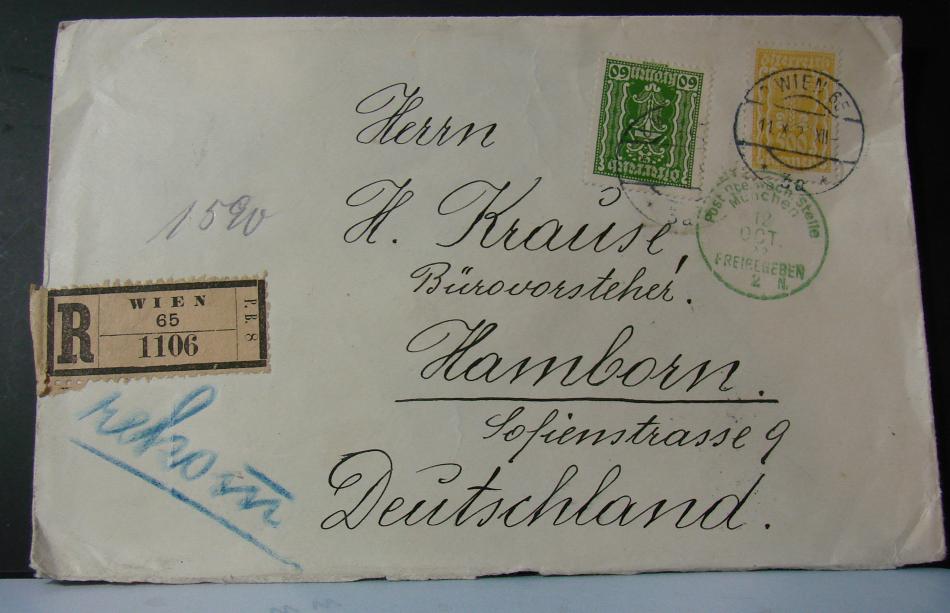 Herrn
H. Krause,
Bürovorsteher.
Hamborn.
Sofienstrasse 9
Deutschland.
1590
WIEN
65
R
1106
F. E. 8
rekom
60 Kronen 60
Österreich
Österreich
WIEN 65
3a
3a
Postüberwach. Stelle
München
12
OCT.
22
FREIGEGEBEN
2 N.